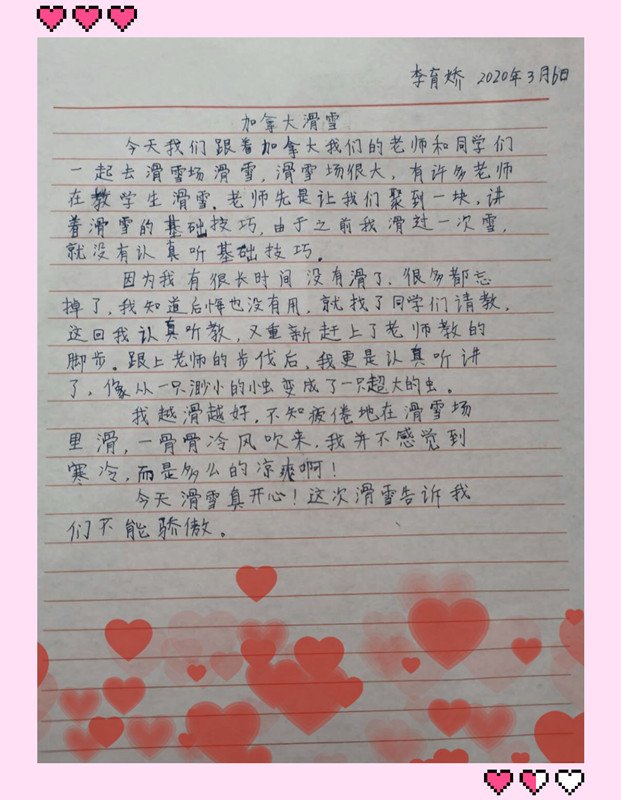 李育娇 2020年3月6日
加拿大滑雪
今天我们跟着加拿大我们的老师和同学们
一起去滑雪场滑雪，滑雪场很大，有许多老师
在教学生滑雪。老师先是让我们聚到一块，讲
着滑雪的基础技巧，由于之前我滑过一次雪，
就没有认真听基础技巧。
因为我有很长时间没有滑了，很多都忘
掉了，我知道后悔也没有用，就找了同学们请教，
这回我认真听教，又重新赶上了老师教的
脚步。跟上老师的步伐后，我更是认真听讲
了，像从一只渺小的小虫变成了一只超大的虫。
我越滑越好，不知疲倦地在滑雪场
里滑，一骨骨冷风吹来，我并不感觉到
寒冷，而是多么的凉爽啊！
今天滑雪真开心！这次滑雪告诉我
们不能骄傲。